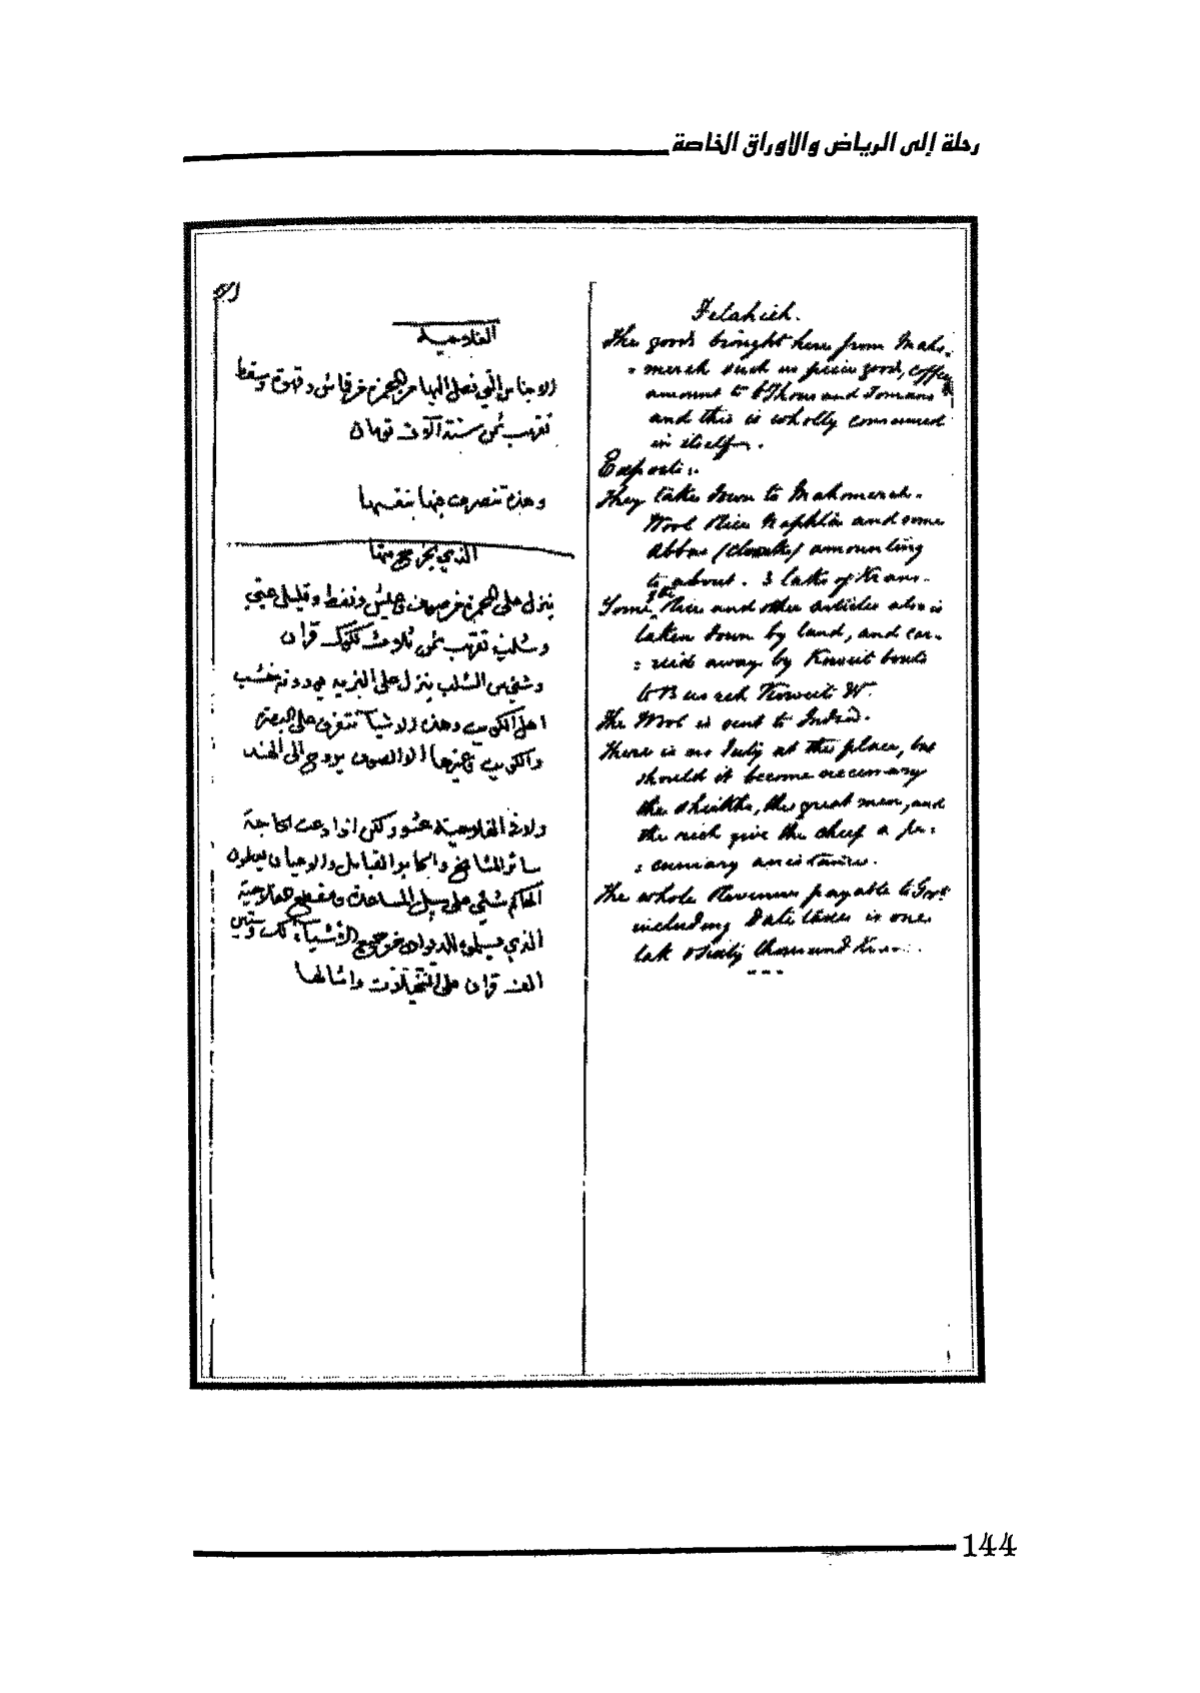 رحلة إلى الرياض والاوراق الخاصة
الفلاحية
الاجناس التي تصل اليها من المحمرة قماش وقهوة وسقط
تقريب ثمن ستة آلاف تومان
وهذه تنصرف فيها بنفسها
الذي يخرج منها
ينزل على المحمرة صوف ونفط وقليل عبي
تقريب ثمن ثلاث لكك قران
وشي من الشلب ينزل على
اهل الكويت وهذه الاشيا تتفرق على البصرة
والكويت وغيرها الا الصوف يروح الى الهند
ولا في الفلاحية عشور لكن اذا دعت الحاجة
سائر المشايخ القبايل والاعيان يعطون
الحاكم شي على سبيل المساعدة الفلاحية
الذي للديوان الأشياء لك وستين
الف قران على وامثالها
Felahieh.
The goods brought here from Moho-
= merah such as piece goods, coffee
amount to 6 Thousand Tomans
and this is wholly consumed
in itself.
Exports:.
They take down to Mahomerah.
Wool Rice Naphtha and some
Abbas (cloaks) amounting
to about. 3 laks of Krans.
Some Rice and other articles also is
taken down by land, and car-
= ried away by Kuweit boats
to Busreh Kuweit &c.
The Wool is sent to India.
There is no duty at this place, but
should it become necessary
the sheikhs, the great men, and
the rich give the chief a pe-
= cuniary assistance.
The whole Revenue payable to Govt
including Date taxes is one
lak & sixty thousand Krans.
144